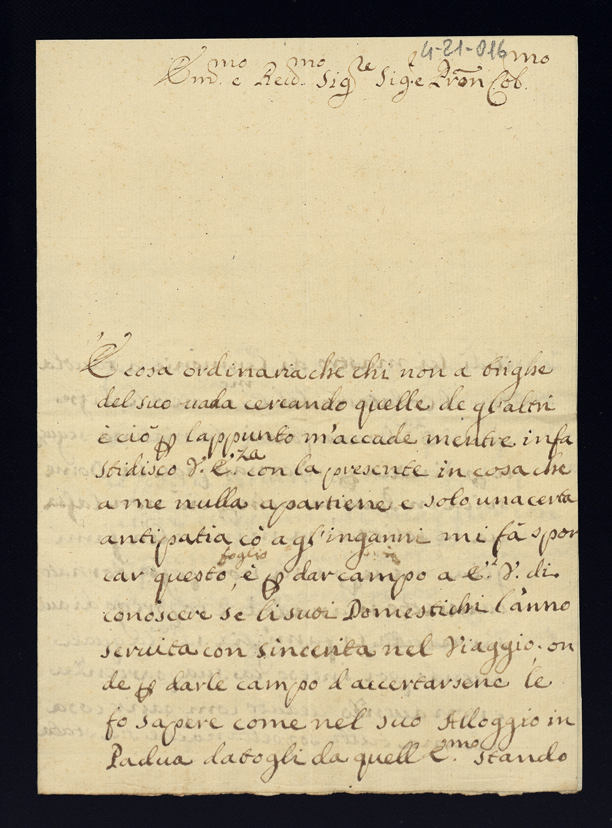 4-21-816
Em.mo e Reud.mo Sig.re Sig.e Pron Col.mo
È cosa ordinaria che chi non a brighe
del suo uada cercando quelle de gl'altri
è ciò p l'appunto m'accade mentre infa
stidisco V. E.za con la presente in cosa che
a me nulla apartiene e solo una certa
antipatia cò a gl'inganni mi fà spor
car questo foglio, è p dar campo a E. V. di
conoscere se li suoi Domestichi l'anno
seruita con sincerita nel Viaggio. on
de p darle campo d'accertarsene le
fo sapere come nel suo Alloggio in
Padua datogli da quell E.mo stando